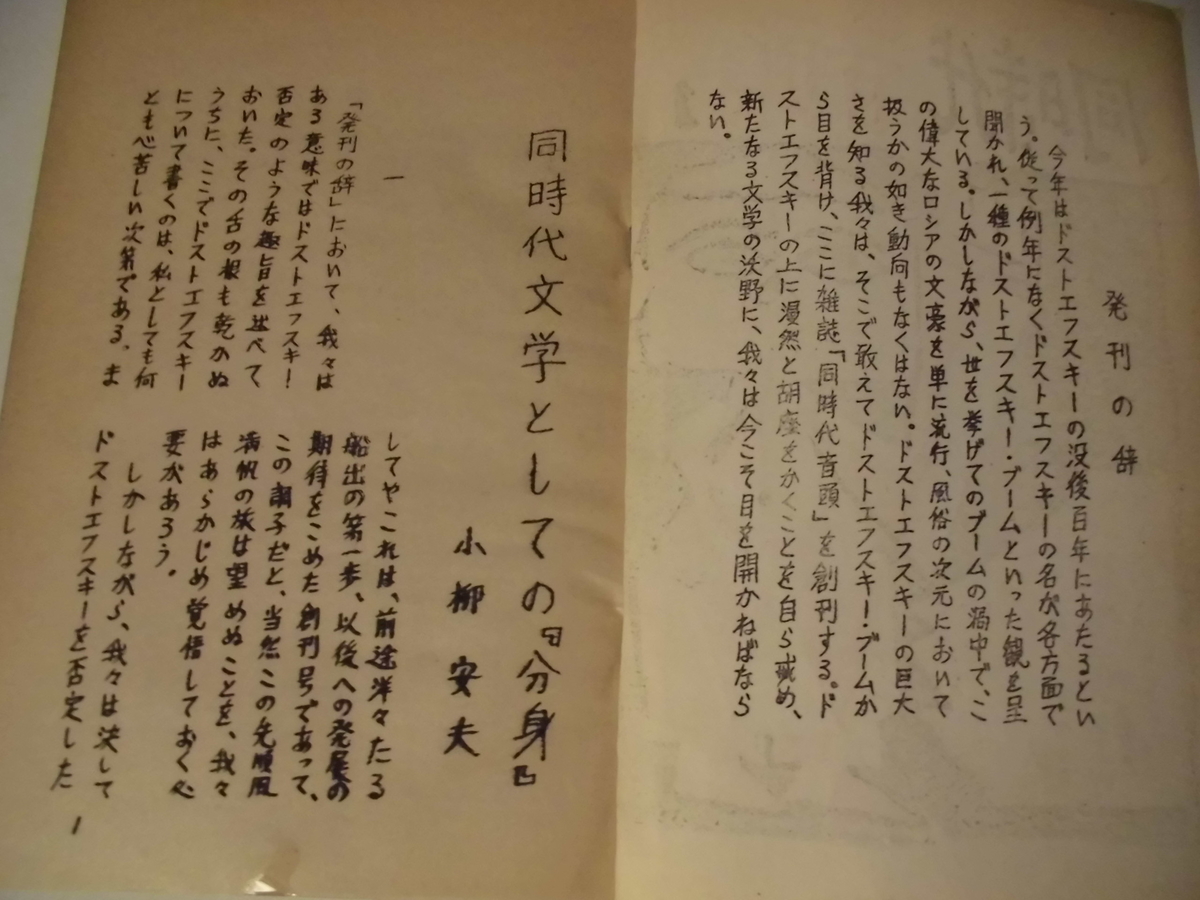 発刊の辞
今年はドストエフスキーの没後百年にあたるとい
う。従って例年になくドストエフスキーの名が各方面で
聞かれ、一種のドストエフスキー・ブームといった観を呈
している。しかしながら、世を挙げてのブームの渦中で、こ
の偉大なロシアの文豪を単に流行、風俗の次元において
扱うかの如き動向もなくはない。ドストエフスキーの巨大
さを知る我々は、そこで敢えてドストエフスキー・ブームか
ら目を背け、ここに雑誌「同時代音頭」を創刊する。ド
ストエフスキーの上に漫然と胡座をかくことを自ら戒め、
新たなる文学の沃野に、我々は今こそ目を開かねばなら
ない。
同時代文学としての『分身』
小柳安夫
一
「発刊の辞」において、我々は
ある意味ではドストエフスキー
否定のような趣旨を述べて
おいた。その舌の根も乾かぬ
うちに、ここでドストエフスキー
について書くのは、私としても何
とも心苦しい次第である。ま
してやこれは、前途洋々たる
船出の第一歩、以後への発展の
期待をこめた創刊号であって、
この調子だと、当然この先順風
満帆の旅は望めぬことを、我々
はあらかじめ覚悟しておく必
要があろう。
しかしながら、我々は決して
ドストエフスキーを否定した
1
同時代